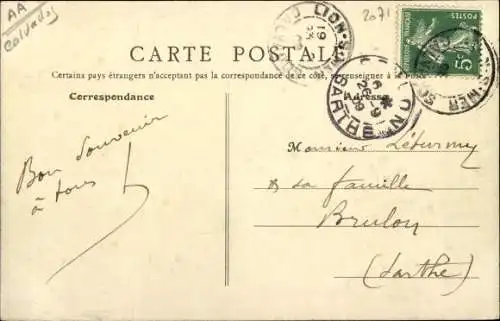 AA
Calvados
2071
LION-S-MER
CALVADOS
POSTES
5
CARTE POSTALE
Certains pays étrangers n'acceptent pas la correspondance de ce côté, se renseigner à la Poste
Correspondance
Adresse
BRULON
SARTHE
Bon Souvenir
à tous
Monsieur
& sa famille
Brulon
(Sarthe)